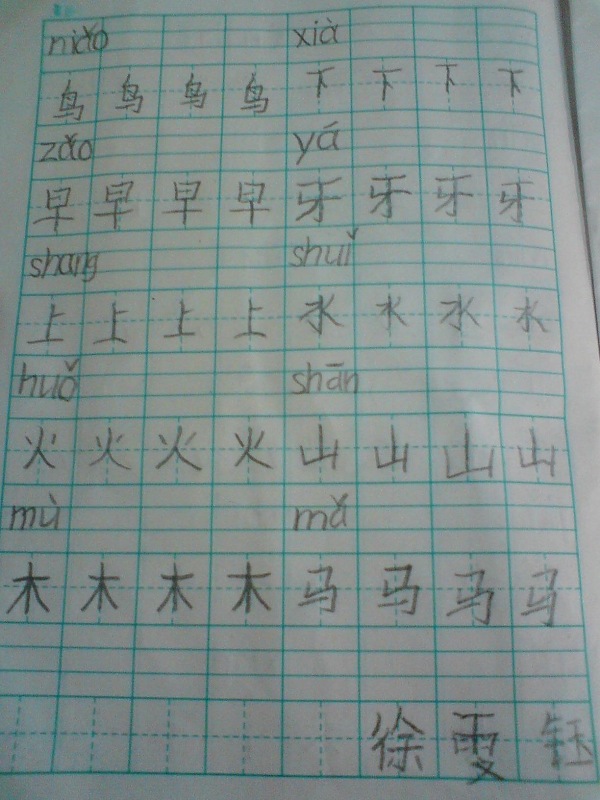 niǎo xià
鸟 鸟 鸟 鸟 下 下 下 下
zǎo yá
早 早 早 早 牙 牙 牙 牙
shang shuǐ
上 上 上 上 水 水 水 水
huǒ shān
火 火 火 火 山 山 山 山
mù mǎ
木 木 木 木 马 马 马 马
徐 雯 钰